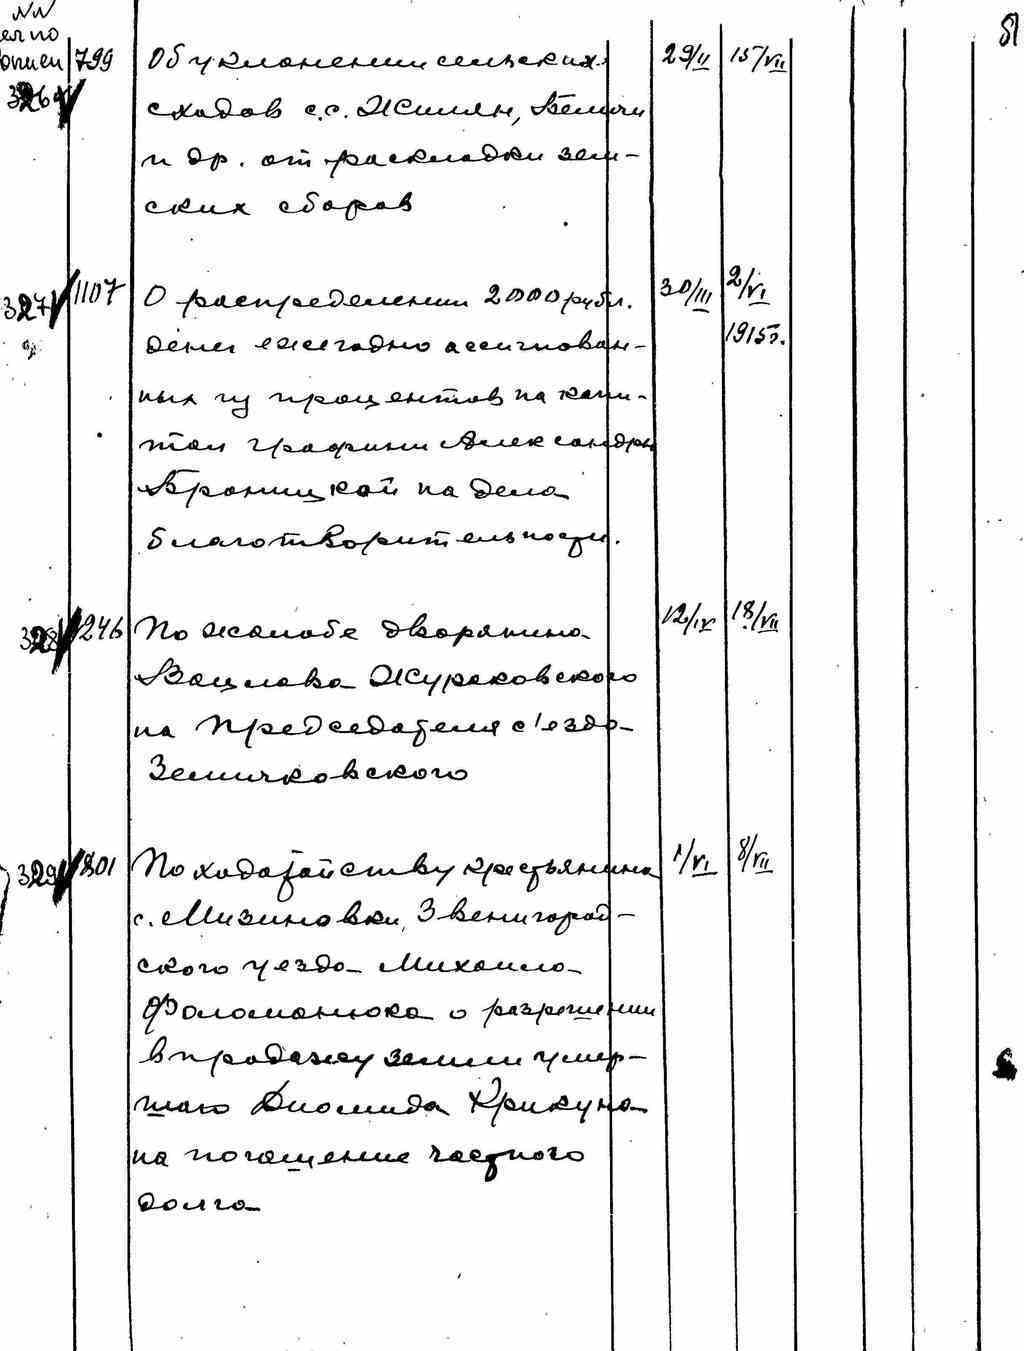 NN
дел по
описи 799 Об уклонении сельских 29/II 15/VII
326 сходов с.с. Жилян, Величи
и др. от раскладки зем-
ских сборов
327 1107 О распределении 2000 рубл. 30/III 2/VI
денег ежегодно ассигнован- 1915г.
ных из процентов на капи-
тал графини Александры
Браницкой на дела
благотворительности.
328 246 По жалобе дворянина 12/IV 18/VII
Вацлава Жураковского
на Председателя с'езда
Земичковского
329 801 По ходатайству крестьянина 1/VI 8/VII
с. Мизиновки, Звенигород-
ского уезда Михаила
Фаломанюка о разрешении
в продажу земли умер-
шаго Диомида Крикуна
на погашение частного
долга